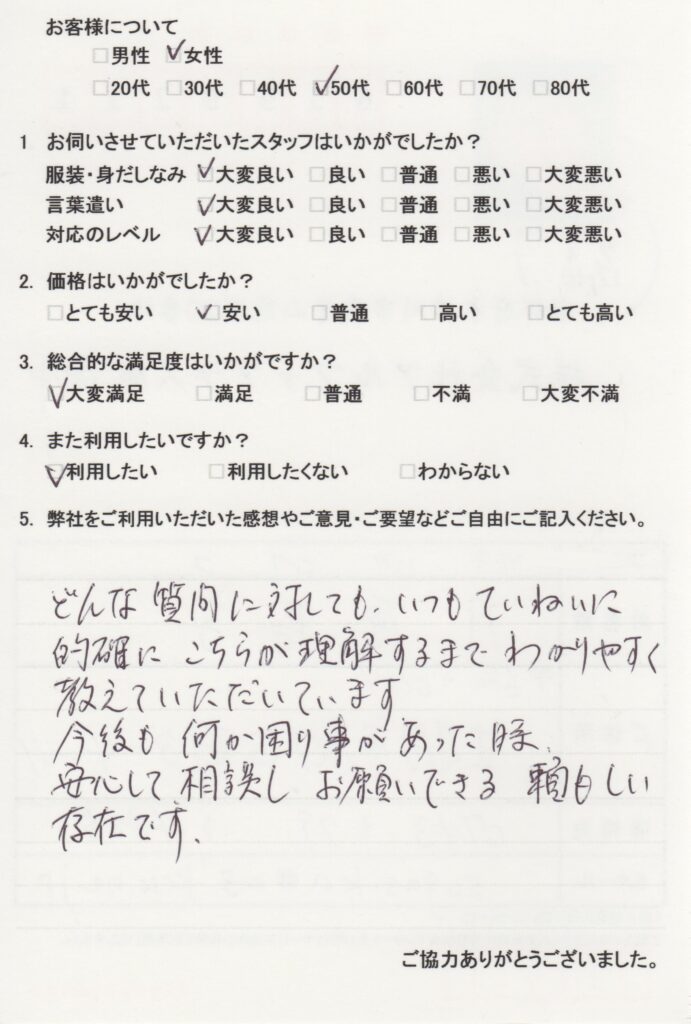 お客様について
□男性 ☑女性
□20代 □30代 □40代 ☑50代 □60代 □70代 □80代
1 お伺いさせていただいたスタッフはいかがでしたか？
服装・身だしなみ ☑大変良い □良い □普通 □悪い □大変悪い
言葉遣い ☑大変良い □良い □普通 □悪い □大変悪い
対応のレベル ☑大変良い □良い □普通 □悪い □大変悪い
2. 価格はいかがでしたか？
□とても安い ☑安い □普通 □高い □とても高い
3. 総合的な満足度はいかがですか？
☑大変満足 □満足 □普通 □不満 □大変不満
4. また利用したいですか？
☑利用したい □利用したくない □わからない
5. 弊社をご利用いただいた感想やご意見・ご要望などご自由にご記入ください。
どんな質問に対しても、いつもていねいに
的確に こちらが理解するまで わかりやすく
教えていただいています
今後も 何か困り事が あった時、
安心して 相談し お願いできる 頼もしい
存在です、
ご協力ありがとうございました。